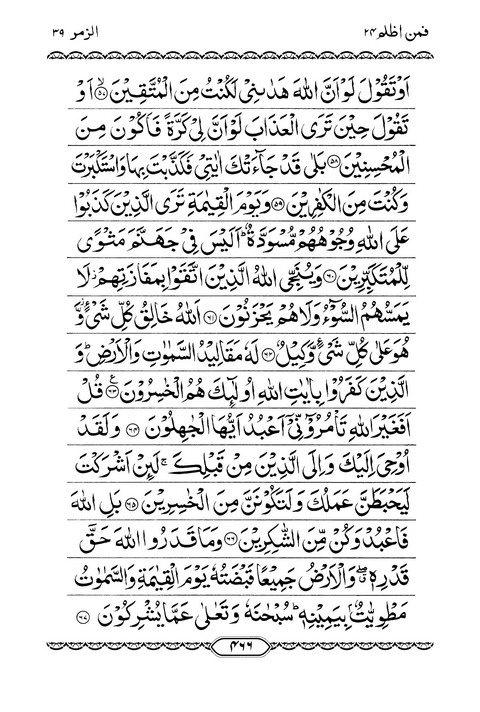 فمن اظلم ٢٤ الزمر ٣٩
اَوْ تَقُوْلَ لَوْ اَنَّ اللّٰهَ هَدٰىنِیْ لَكُنْتُ مِنَ الْمُتَّقِیْنَ ۙ۝۵۷ اَوْ
تَقُوْلَ حِیْنَ تَرَی الْعَذَابَ لَوْ اَنَّ لِیْ كَرَّةً فَاَكُوْنَ مِنَ
الْمُحْسِنِیْنَ ۝۵۸ بَلٰی قَدْ جَآءَتْكَ اٰیٰتِیْ فَكَذَّبْتَ بِهَا وَاسْتَكْبَرْتَ
وَكُنْتَ مِنَ الْكٰفِرِیْنَ ۝۵۹ وَیَوْمَ الْقِیٰمَةِ تَرَی الَّذِیْنَ كَذَبُوْا
عَلَی اللّٰهِ وُجُوْهُهُمْ مُّسْوَدَّةٌ ؕ اَلَیْسَ فِیْ جَهَنَّمَ مَثْوًی
لِّلْمُتَكَبِّرِیْنَ ۝۶۰ وَیُنَجِّی اللّٰهُ الَّذِیْنَ اتَّقَوْا بِمَفَازَتِهِمْ ؗ لَا
یَمَسُّهُمُ السُّوْٓءُ وَلَا هُمْ یَحْزَنُوْنَ ۝۶۱ اَللّٰهُ خَالِقُ كُلِّ شَیْءٍ ؗ وَّ
هُوَ عَلٰی كُلِّ شَیْءٍ وَّكِیْلٌ ۝۶۲ لَهٗ مَقَالِیْدُ السَّمٰوٰتِ وَالْاَرْضِ ؕ وَ
الَّذِیْنَ كَفَرُوْا بِاٰیٰتِ اللّٰهِ اُولٰٓئِكَ هُمُ الْخٰسِرُوْنَ ۝۶۳ ع قُلْ
اَفَغَیْرَ اللّٰهِ تَاْمُرُوْٓنِّیْۤ اَعْبُدُ اَیُّهَا الْجٰهِلُوْنَ ۝۶۴ وَلَقَدْ
اُوْحِیَ اِلَیْكَ وَاِلَی الَّذِیْنَ مِنْ قَبْلِكَ ۚ لَىِٕنْ اَشْرَكْتَ
لَیَحْبَطَنَّ عَمَلُكَ وَلَتَكُوْنَنَّ مِنَ الْخٰسِرِیْنَ ۝۶۵ بَلِ اللّٰهَ
فَاعْبُدْ وَكُنْ مِّنَ الشّٰكِرِیْنَ ۝۶۶ وَمَا قَدَرُوا اللّٰهَ حَقَّ
قَدْرِهٖ ۖۗ وَالْاَرْضُ جَمِیْعًا قَبْضَتُهٗ یَوْمَ الْقِیٰمَةِ وَالسَّمٰوٰتُ
مَطْوِیّٰتٌۢ بِیَمِیْنِهٖ ؕ سُبْحٰنَهٗ وَتَعٰلٰی عَمَّا یُشْرِكُوْنَ ۝۶۷
۴۶۶